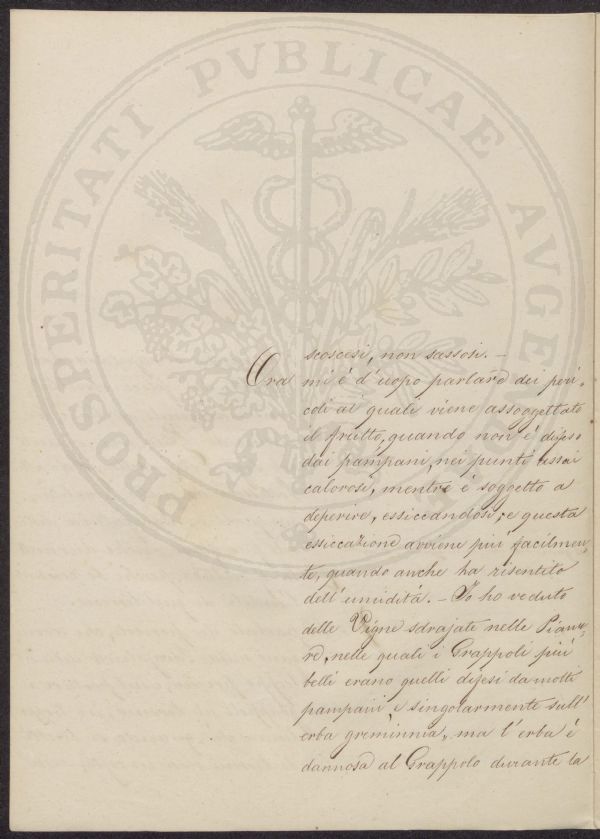 PROSPERITATI PVBLICAE AVGENDAE
scoscesi, non sassosi. —
Ora mi é d'uopo parlare dei peri-
coli ai quali viene assoggettato
il frutto, quando non é difeso
dai pampani, nei punti assai
calorosi, mentre é soggetto a
deperire, essiccandosi, e questa
essiccazione avviene piú facilmen-
te, quando anche ha risentito
dell'umiditá. — Io ho veduto
delle Vigne sdrajate nelle Pianu-
re, nelle quali i Grappoli piú
belli erano quelli difesi da molti
pampani e singolarmente sull'
erba greminnia, ma l'erba é
dannosa al Grappolo durante la